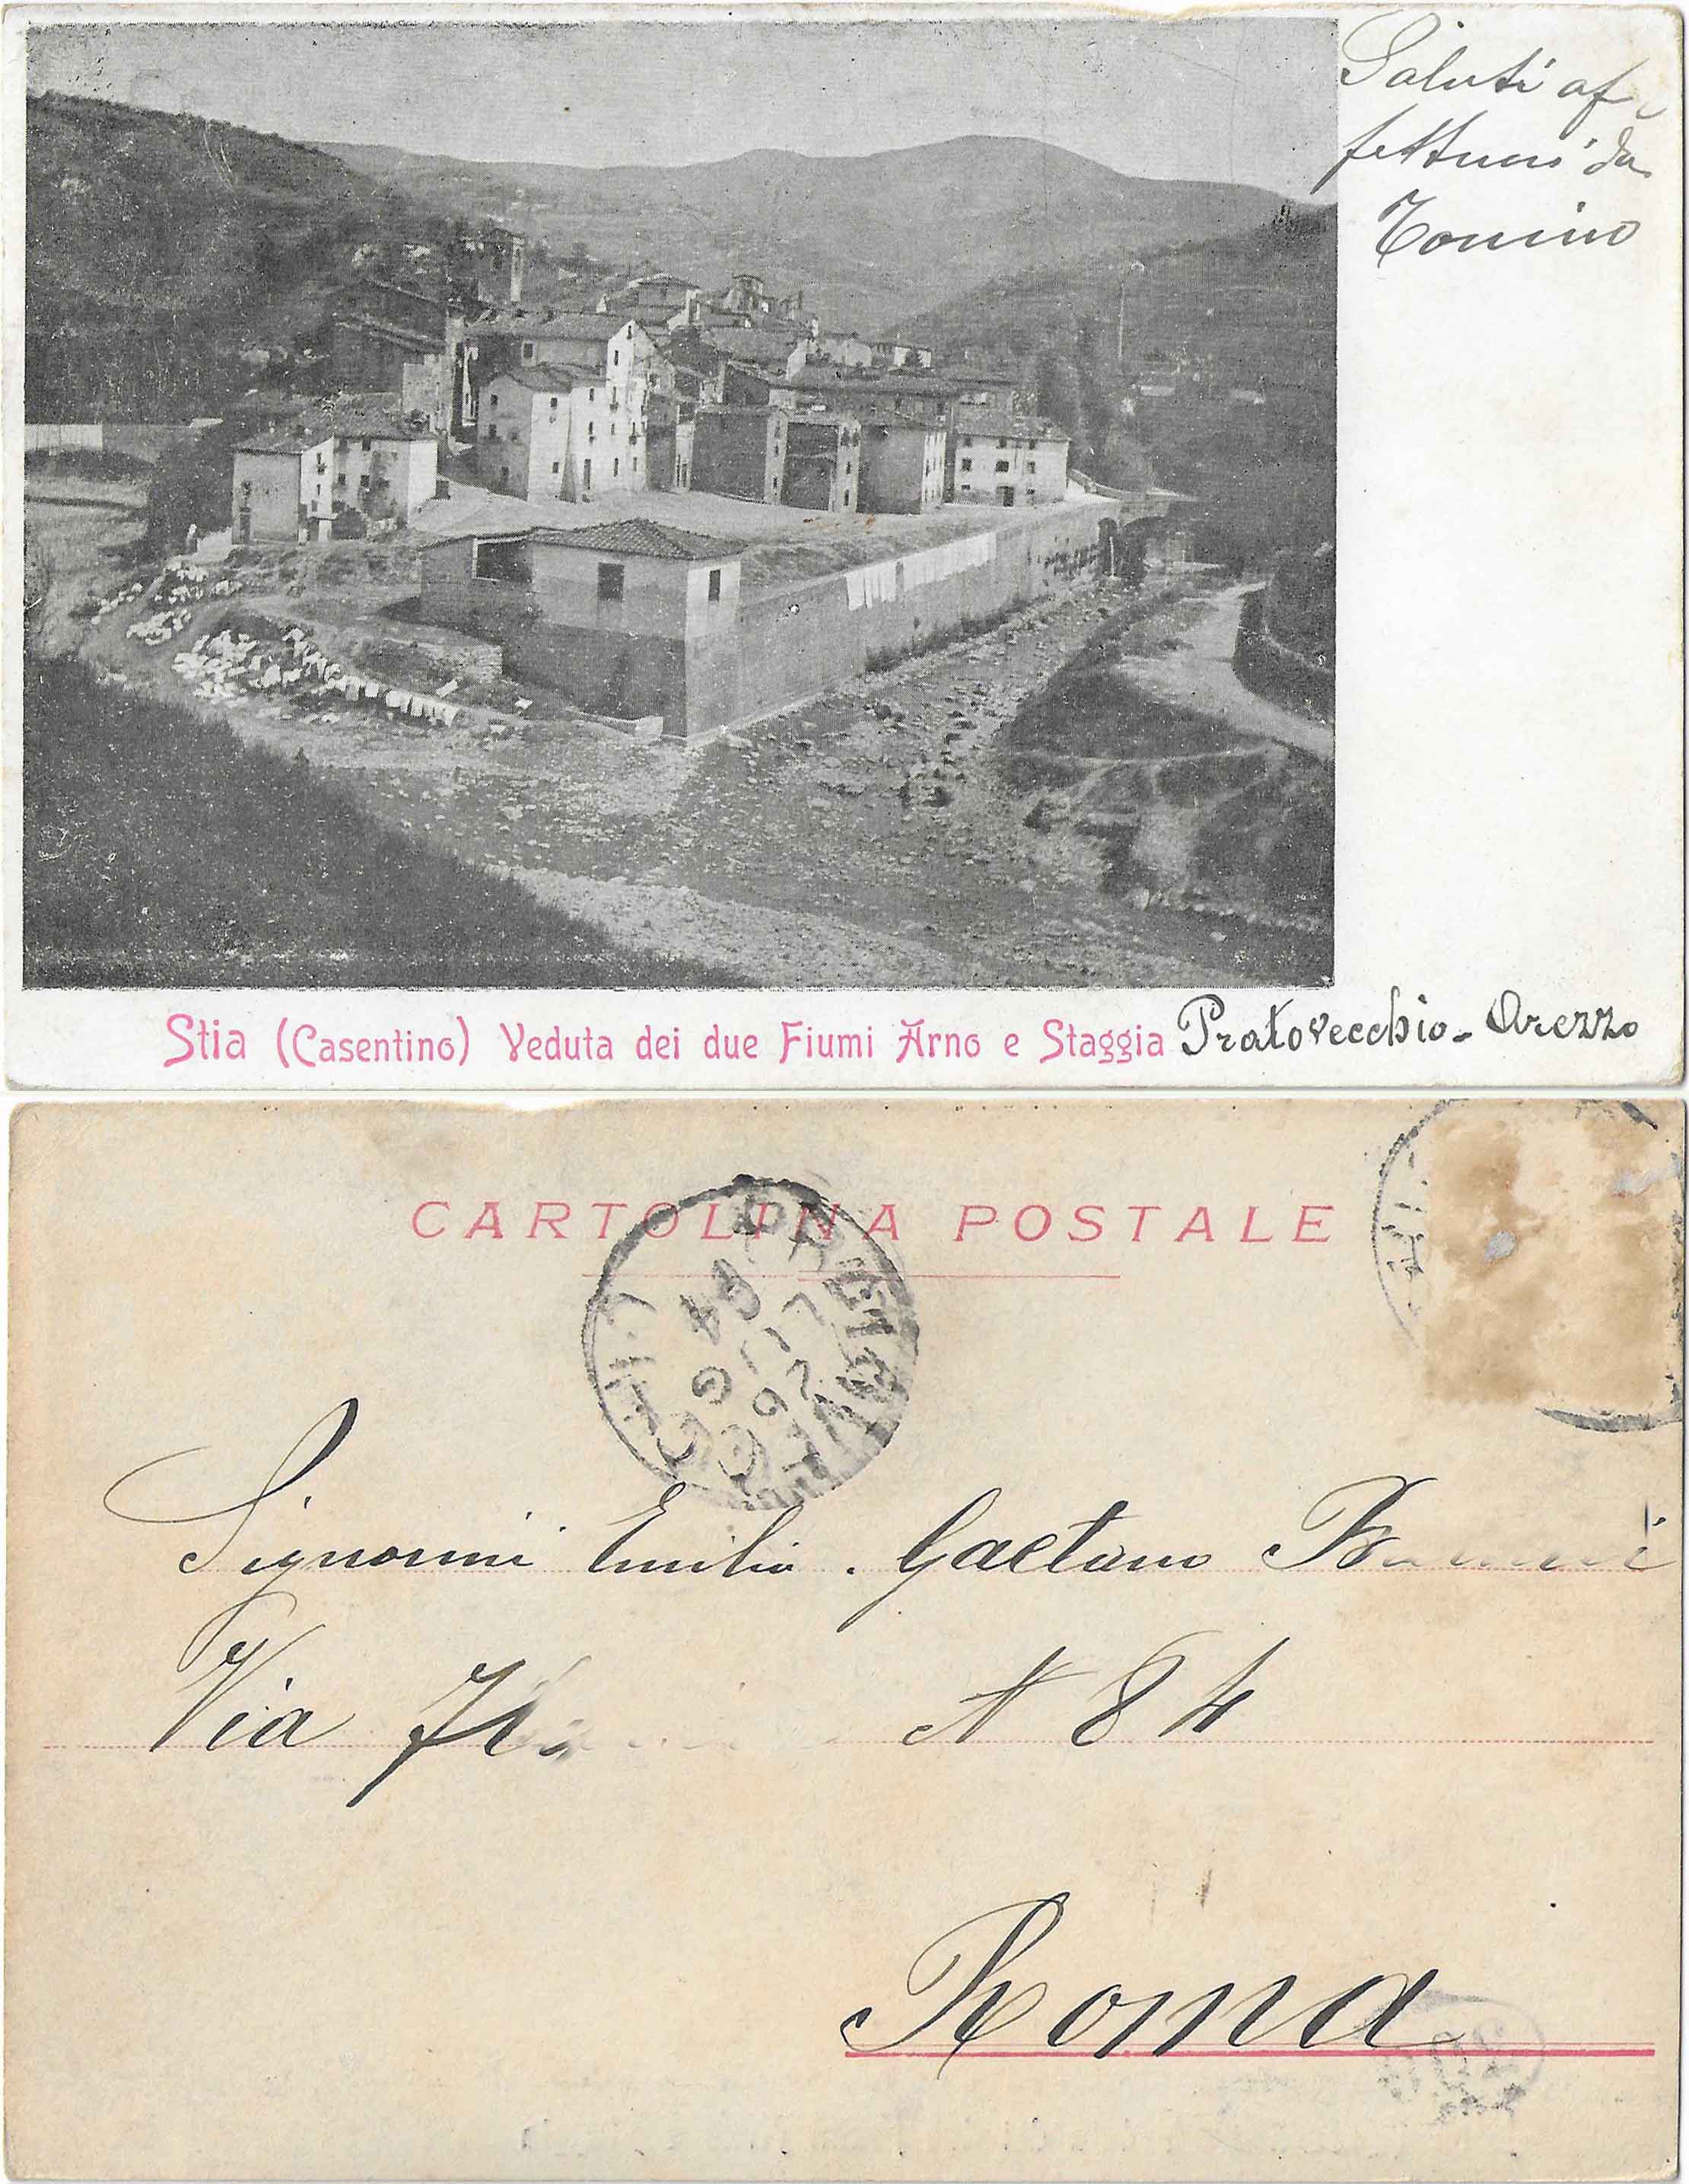 Saluti af
fettuosi da
Tonino
Stia (Casentino) Veduta dei due Fiumi Arno e Staggia Pratovecchio - Arezzo
CARTOLINA POSTALE
PRATOVECCHIO
04
Signorini Emilio . Gaetano
Via N 84
Roma